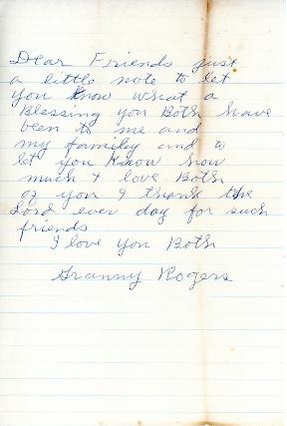 Dear Friends just
a little note to let
you know what a
Blessing you Both have
been to me and
my family and to
let you know how
much I love Both
of you I thank the
Lord ever day for such
friends
I love you Both
Granny Rogers